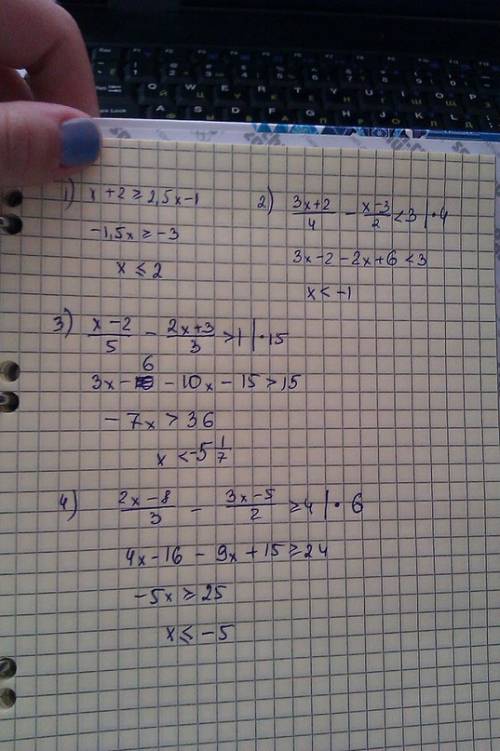 1) x + 2 ≥ 2,5x - 1
-1,5x ≥ -3
x ≤ 2
2) (3x+2)/4 - (x-3)/2 < 3 | · 4
3x - 2 - 2x + 6 < 3
x < -1
3) (x-2)/5 - (2x+3)/3 > 1 | · 15
3x - 6 - 10x - 15 > 15
-7x > 36
x < -5 1/7
4) (2x-8)/3 - (3x-5)/2 ≥ 4 | · 6
4x - 16 - 9x + 15 ≥ 24
-5x ≥ 25
x ≤ -5